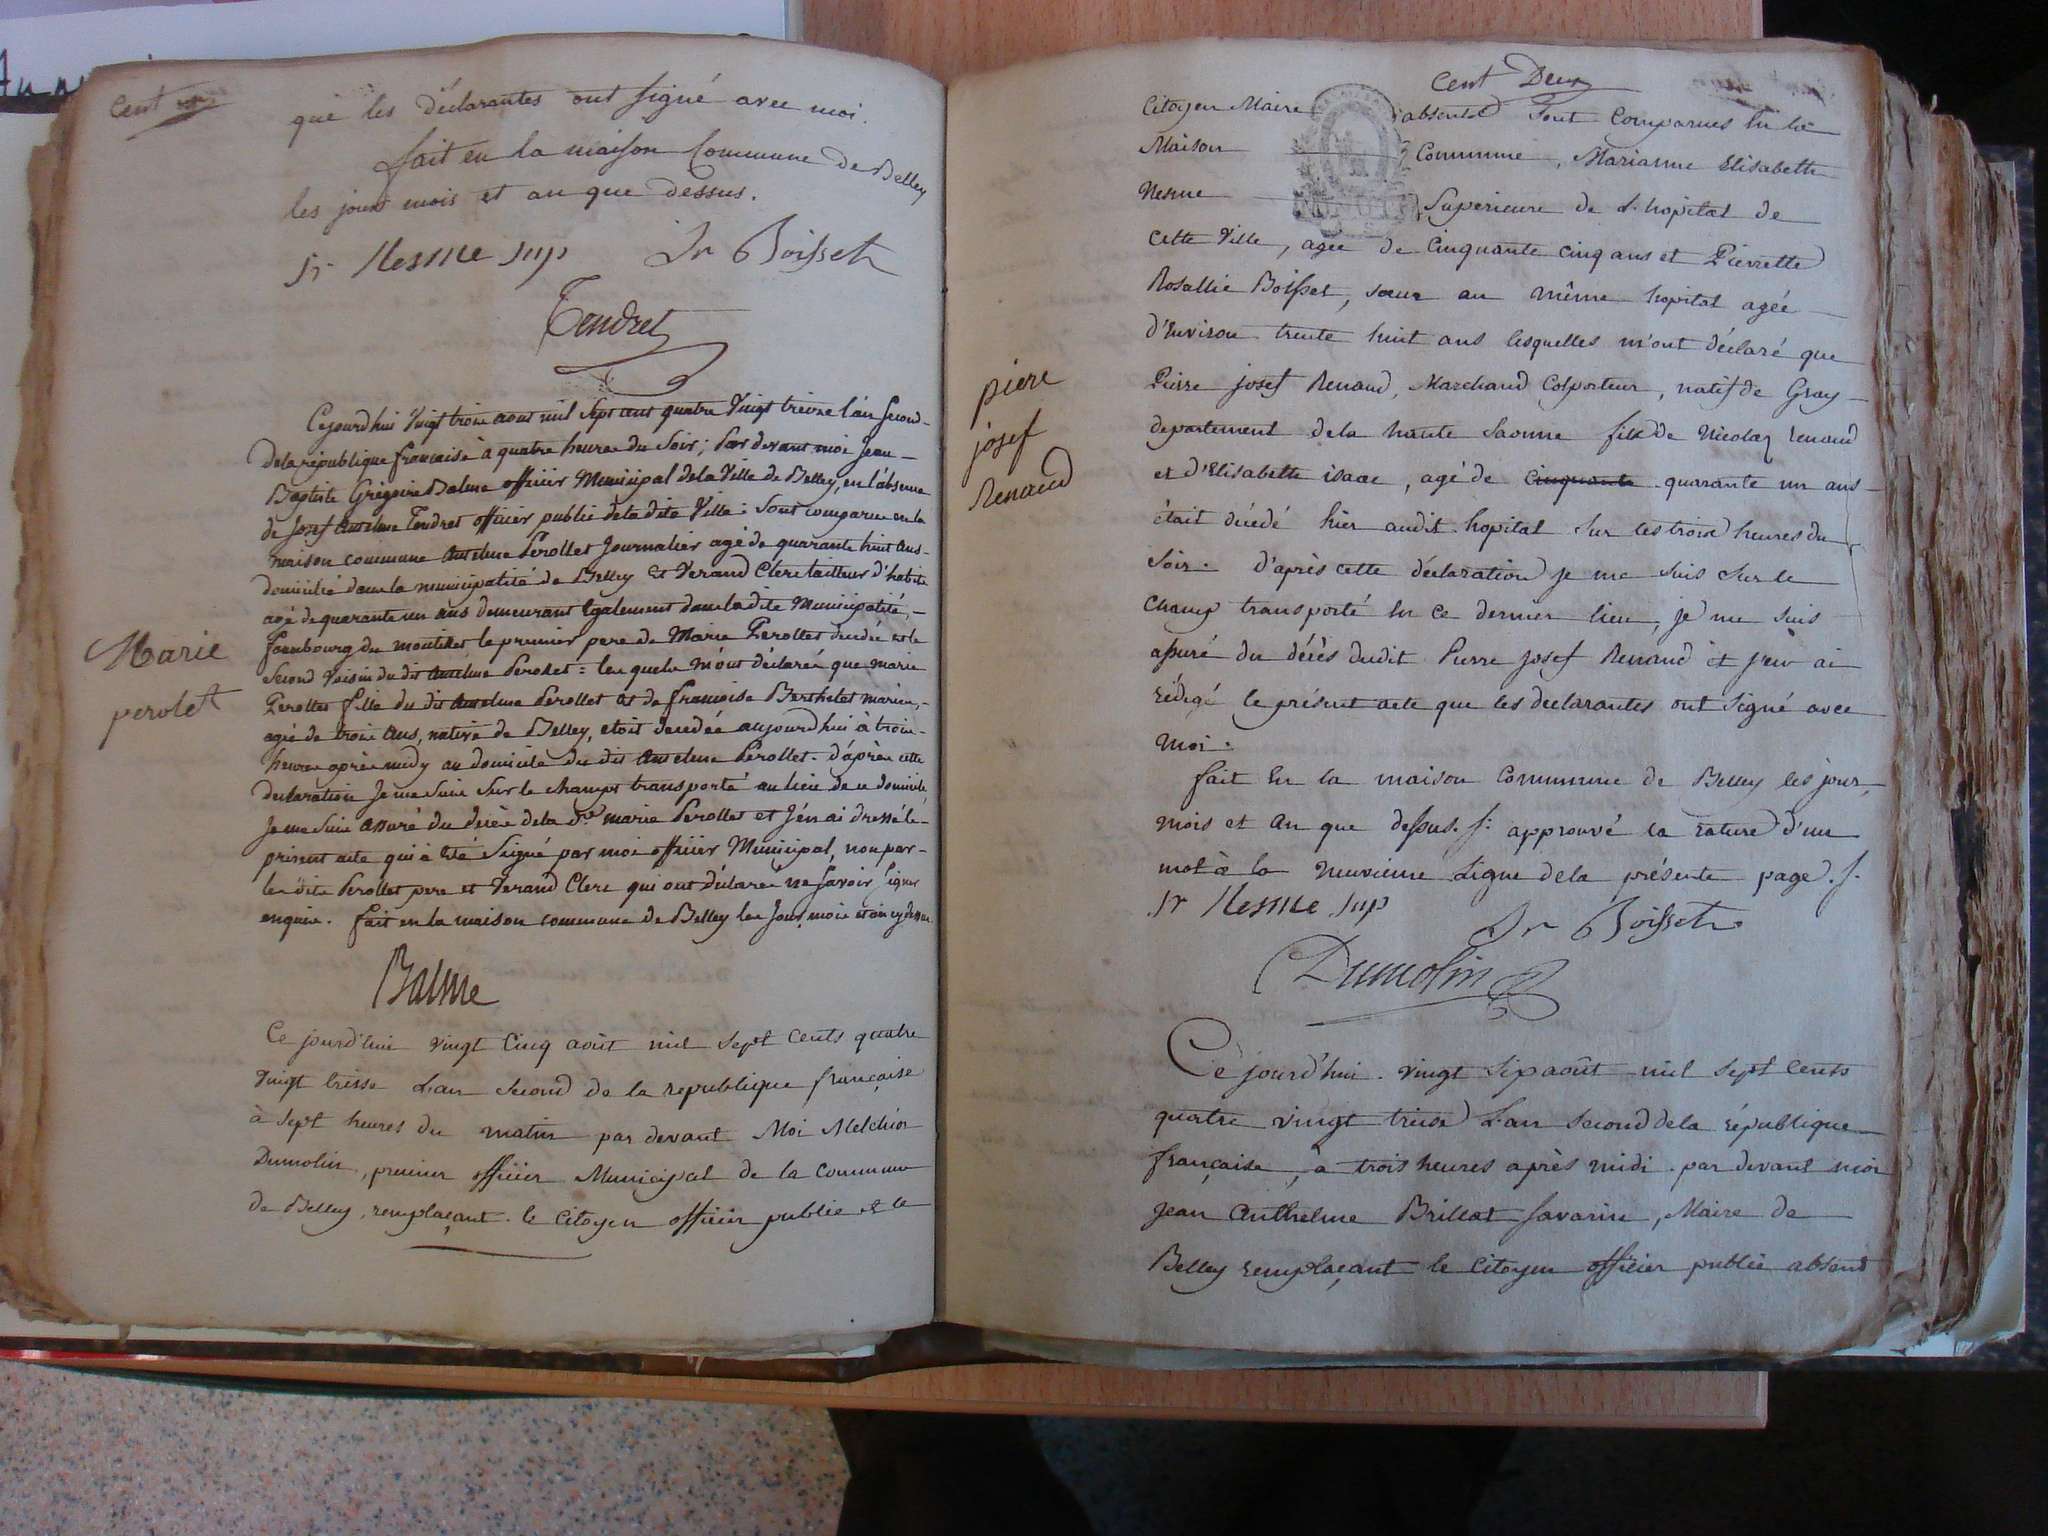 Cent
que les déclarantes ont signé avec moi.
fait en la maison Commune de Belley
les jour mois et an que dessus.
Sr Nesme Sup Sr Boisset
Tendret
Marie
perolet
Cejourd'hui Vingt trois aout mil Sept cent quatre Vingt treize l'an Second
de la république française à quatre heures du Soir; Par devant moi Jean-
Baptiste Grégoire Balme officier Municipal de la Ville de Belley, en l'absence
de Josef Anselme Tendret officier public de la dite Ville; Sont comparus en la
maison commune Anselme Perollet Journalier agé de quarante huit ans-
domicilié dans la municipalité de Belley Et Verand Clerc tailleur d'habits
agé de quarante un ans demeurant Egalement dans la dite Municipalité,-
fauxbourg du , le premier pere de Marie Perollet décédée et le
Second Voisin du dit Anselme Perollet: les quels m'ont déclaré que marie
Perollet fille du dit Anselme Perollet et de françoise Berthelet mariés,-
agée de trois ans, native de Belley, etoit decedée aujourd'hui à trois-
heures après midy au domicile du dit Anselme Perollet. d'après cette
declaration Je me Suis Sur le champs transporté au lieu de ce domicile,
Je me Suis assuré du décès de la de marie Perollet et J'en ai dressé le-
présent acte qui à été Signé par moi officier Municipal, non par-
les dits Perollet pere et Verand Clerc qui ont déclaré ne savoir signer
enquis. fait en la maison commune de Belley les Jour, mois et an cy dessus
Balme
Ce jourd'hui vingt Cinq août mil Sept cents quatre
vingt treise L'an second de la republique française
à Sept heures du matin par devant Moi Melchior
Dumolin, premier officier Municipal de la Commune
de Belley, remplaçant le Citoyen officier public et le
Cent Deux
Citoyen Maire absents Sont Comparues En la
Maison Commune, Marianne Elisabeth
Nesme Superieure de L'hopital de
cette Ville, agée de Cinquante cinq ans et Pierrette
Rosallie Boisset, sœur au même hopital agée
d'Environ trente huit ans lesquelles m'ont déclaré que
Pierre Josef Renaud, Marchand Colporteur, natif de Gray
departement de la haute Saonne fils de Nicolas renaud
et d'Elisabeth isaac, agé de cinquante quarante un ans-
était décédé hier audit hopital Sur les trois heures du
Soir. d'après cette déclaration Je me suis Sur le
champ transporté Sur ce dernier lieu, je me suis
assuré du décès dudit Pierre Josef Renaud et j'en ai
rédigé le présent acte que les declarantes ont Signé avec
moi.
fait En la maison Commune de Belley les jour,
mois et an que dessus. /: approuvé la rature d'un
mot à la neuvieme Ligne de la présente page. /.
Sr Nesme Sup
Sr Boisset
Dumolin
piere
josef
Renaud
Cejourd'hui vingt Six août mil Sept Cents
quatre vingt treise L'an Second de la république
française, à trois heures après midi par devant moi
Jean Anthelme Brillat Savarin, Maire de
Belley remplaçant le Citoyen officier public absent